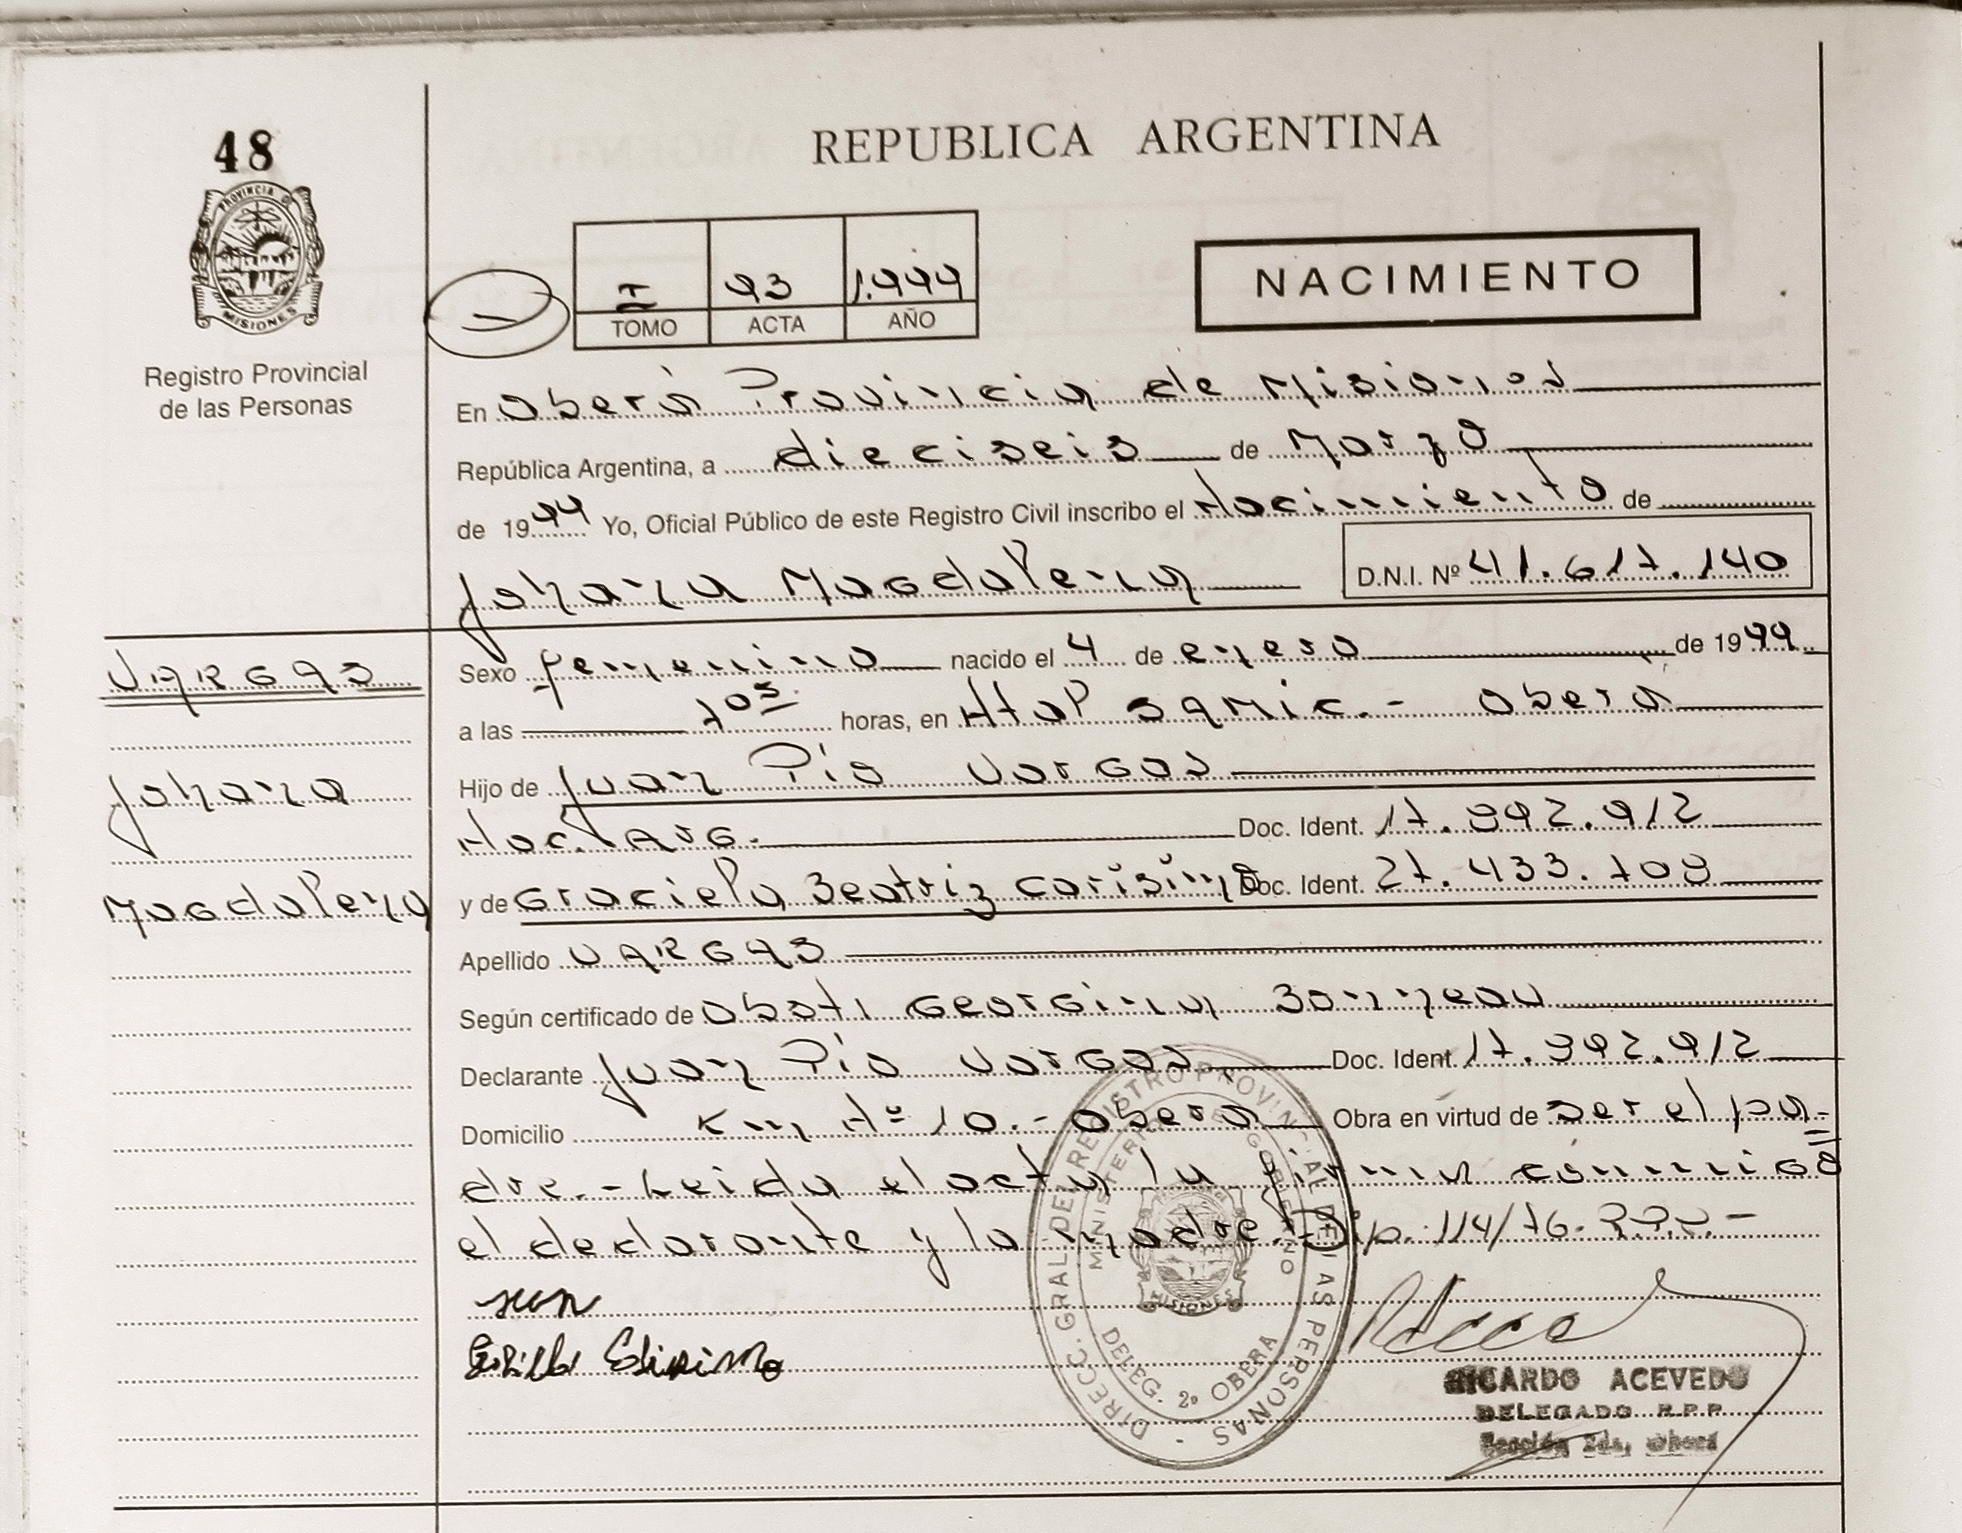 48
REPUBLICA ARGENTINA
PROVINCIA DE
MISIONES
Registro Provincial
de las Personas
I 93 1.999
TOMO ACTA AÑO
NACIMIENTO
En Oberá Provincia de Misiones
República Argentina, a dieciseis de Marzo
de 1999 Yo, Oficial Público de este Registro Civil inscribo el Nacimiento de
Johana Magdalena D.N.I. Nº 41.617.140
VARGAS
Johana
Magdalena
Sexo femenino nacido el 4 de enero de 1999
a las 7 05 horas, en Htal SAMIC.- Oberá
Hijo de Juan Pío Vargas
Nac. Arg. Doc. Ident. 17.892.912
y de Graciela Beatriz Carísimo Doc. Ident. 27.433.708
Apellido VARGAS
Según certificado de Obst. Georgina Bonneau
Declarante Juan Pío Vargas Doc. Ident. 17.892.912
Domicilio Km Nº 10.- Oberá Obra en virtud de ser el pa=
dre.- Leida el acta la firman conmigo
el declarante y la madre.- Dip. 114/76.
DIRECC. GRAL. DEL REGISTRO PROVINCIAL DE LAS PERSONAS -
MINISTERIO DE GOBIERNO
MISIONES
DELEG. 2º OBERA
RICARDO ACEVEDO
DELEGADO R.P.P.
Sección 2da. Oberá